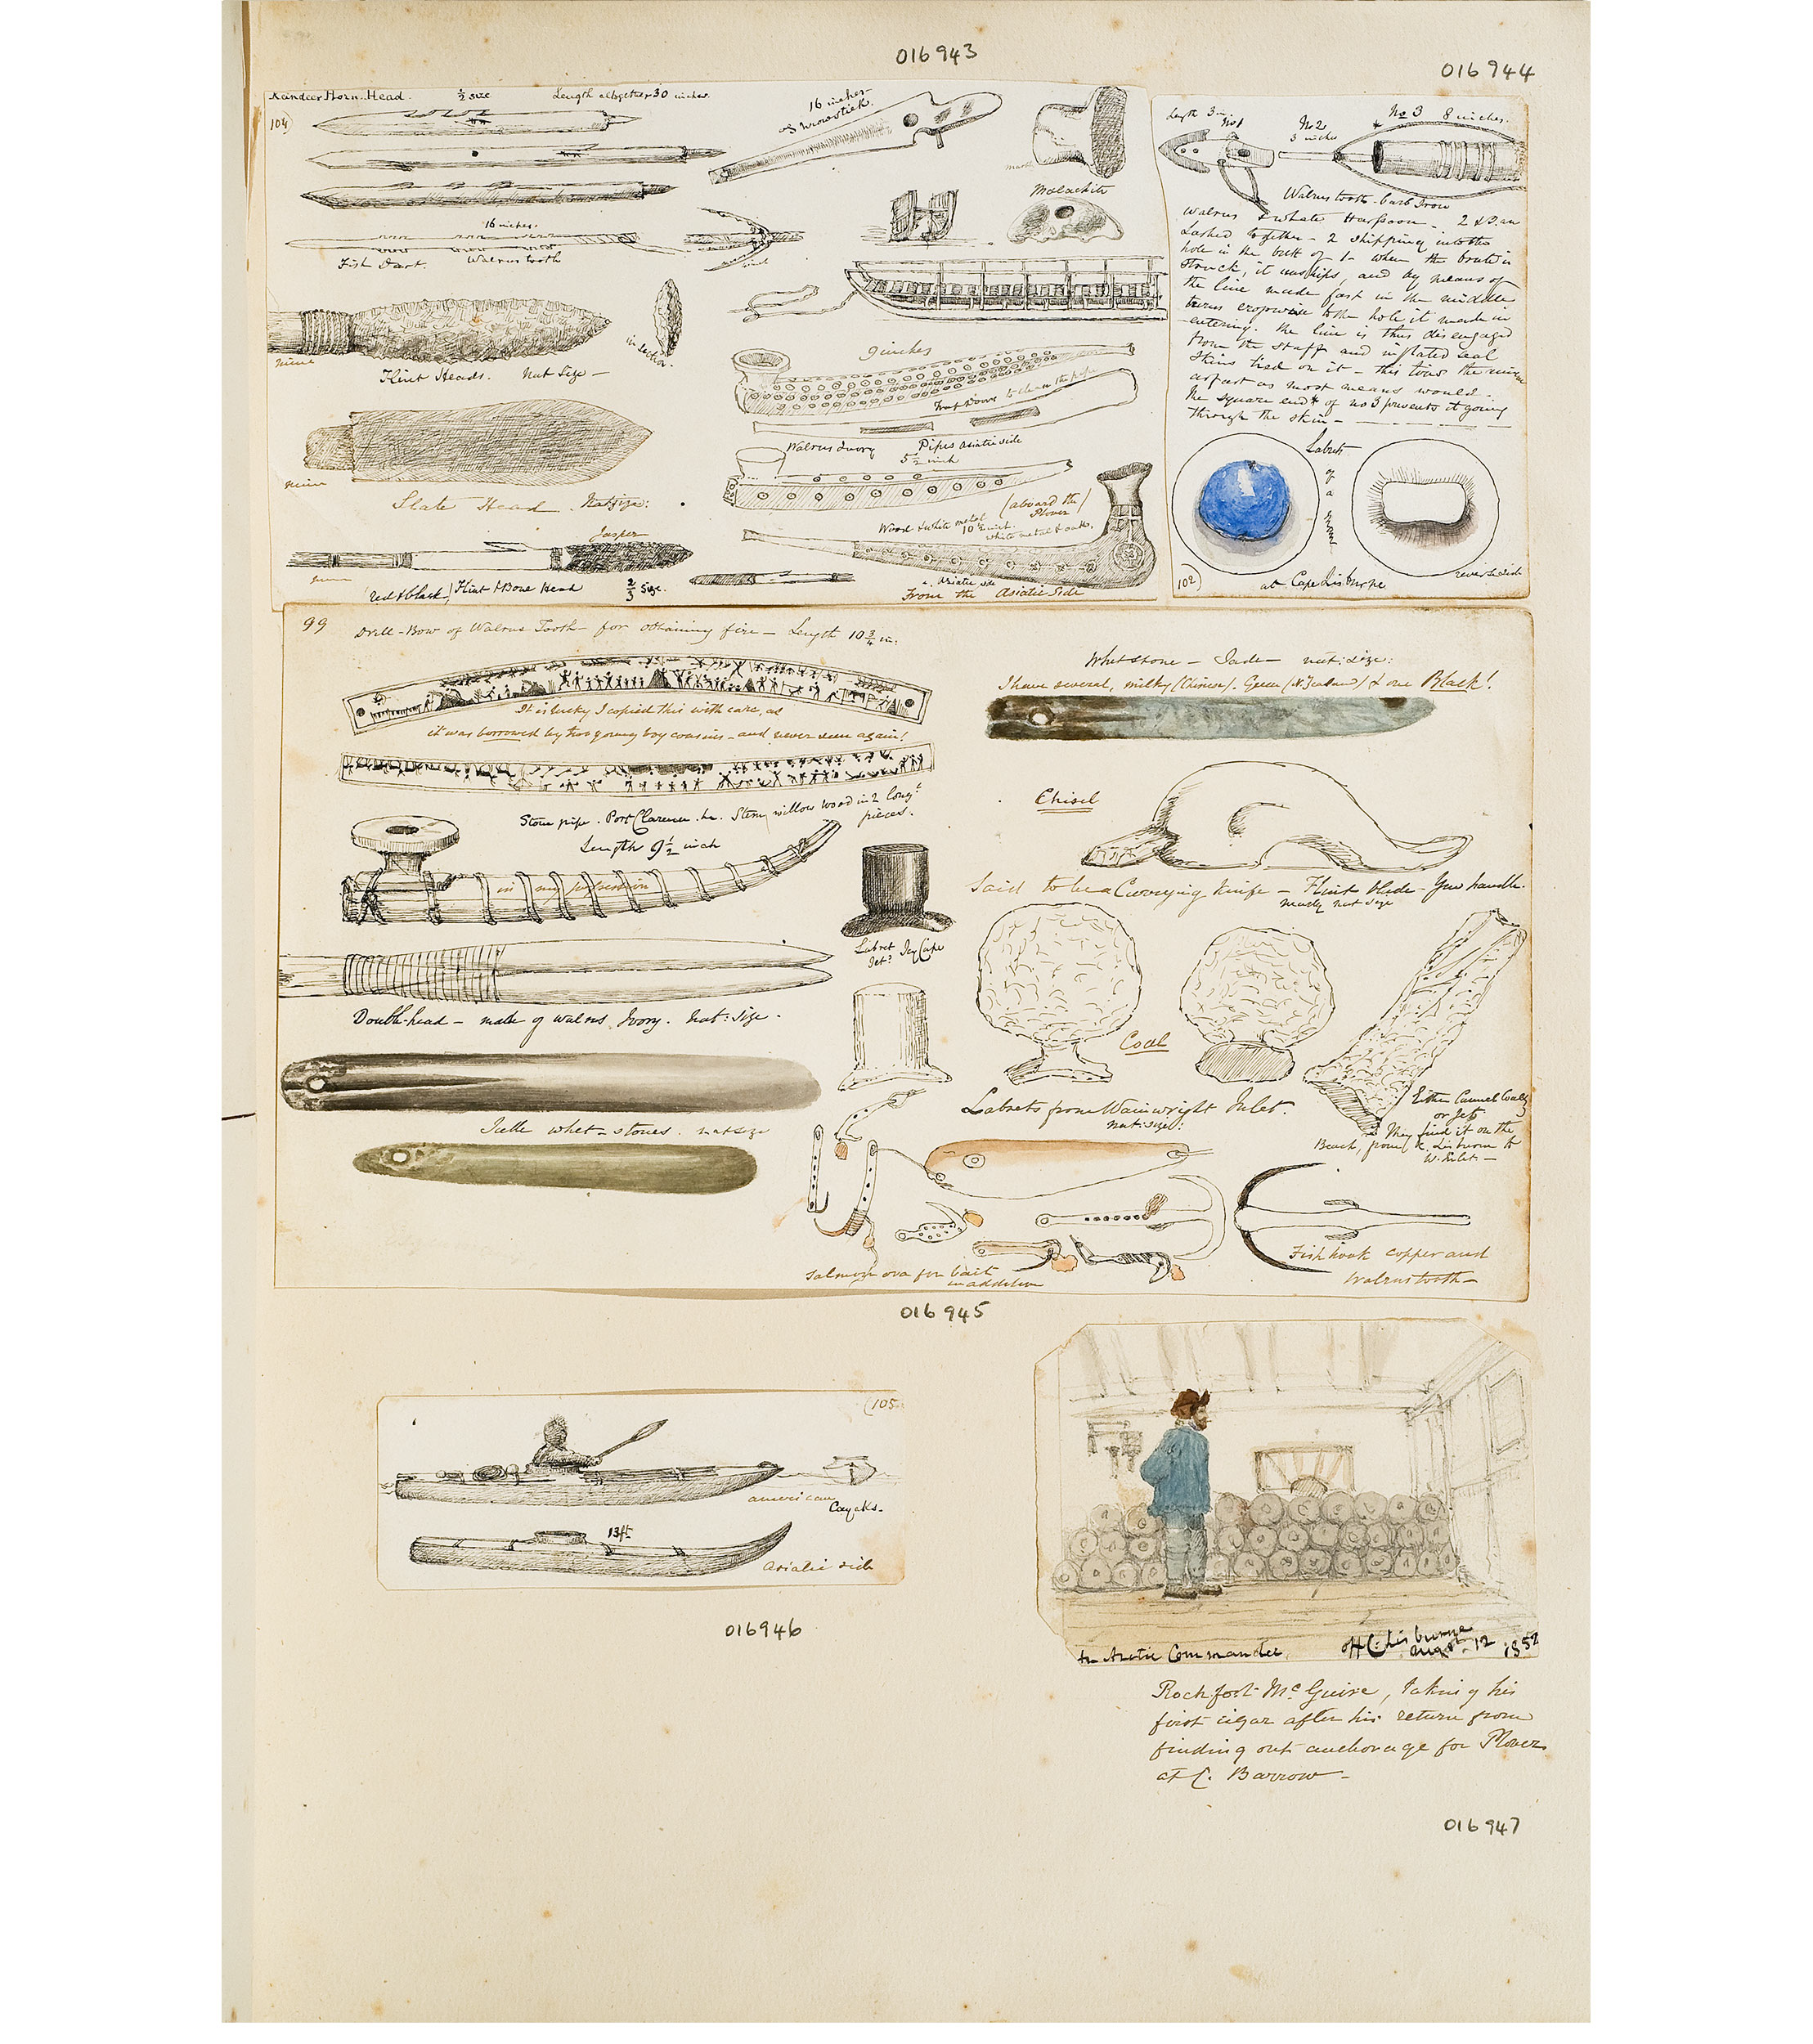 016943
016944
Raindeer Horn. Head. ½ size Length altogether 30 inches.
104
16 inches
Throwstick.
Malachite
16 inches.
Fish Dart. Walrus tooth
mine
in section.
Flint Heads. Nat Size —
mine
Slate Head Nat size:
Jasper
red & black / Flint & Bone Head ⅔ Size.
9 inches
Trap Door to clean the pipe
Walrus Ivory Pipes Asiatic side
5½ inch
(aboard the Plover)
Wood & white metal 10½ inch.
white metal & oak.
Asiatic side
From the Asiatic Side
Length 3 in No1 No2 3 inches No 3 8 inches.
Walrus tooth - barb Iron
Walrus & whale Harpoon - 2 & 3 are
Lashed together - 2 shipping into the
hole in the butt of 1 - when the brute is
struck, it unships, and by means of
the line made fast in the middle
turns crosswise to the hole it made in
entering. the line is thus disengaged
from the staff and inflated seal
skins tied on it - this tires the
as fast as most means would.
The square end of no 3 prevents it going
through the skin -
Labrets
of a
at Cape Lisburne
reverse side
102
99 Drill-Bow of Walrus Tooth - for obtaining fire - Length 10¾ in.
It is lucky I copied this with care, as
it was borrowed by two young boy cousins - and never seen again!
Whetstone - Jade - nat: size:
I have several, milky (Chinese). Green (N. Zealand) & one Black!
Stone pipe. Port Clarence. Stem willow wood in 2 long pieces.
Length 9½ inch
in my possession
Chisel
Said to be a Currying Knife - Flint blade - Yew handle.
nearly nat size
Labret Icy Cape
Jet?
Double-head - made of walrus Ivory. Nat: size.
Coal
Labrets from Wainwright Inlet.
nat: size:
Either Cannel Coal
or Jet
They find it on the
Beach, from C. Lisburne to
W. Inlet. -
Jade whet-stones. nat size
Salmon ova for bait
in addition
Fish hook copper and
Walrus tooth -
016945
105
american
Cayaks.
13 ft
Asiatic side
016946
An Arctic Commander off C. Lisburne
Augst. 12 1852
Rochfort McGuire, taking his
first cigar after his return from
finding out anchorage for Plover
at C. Barrow -
016947